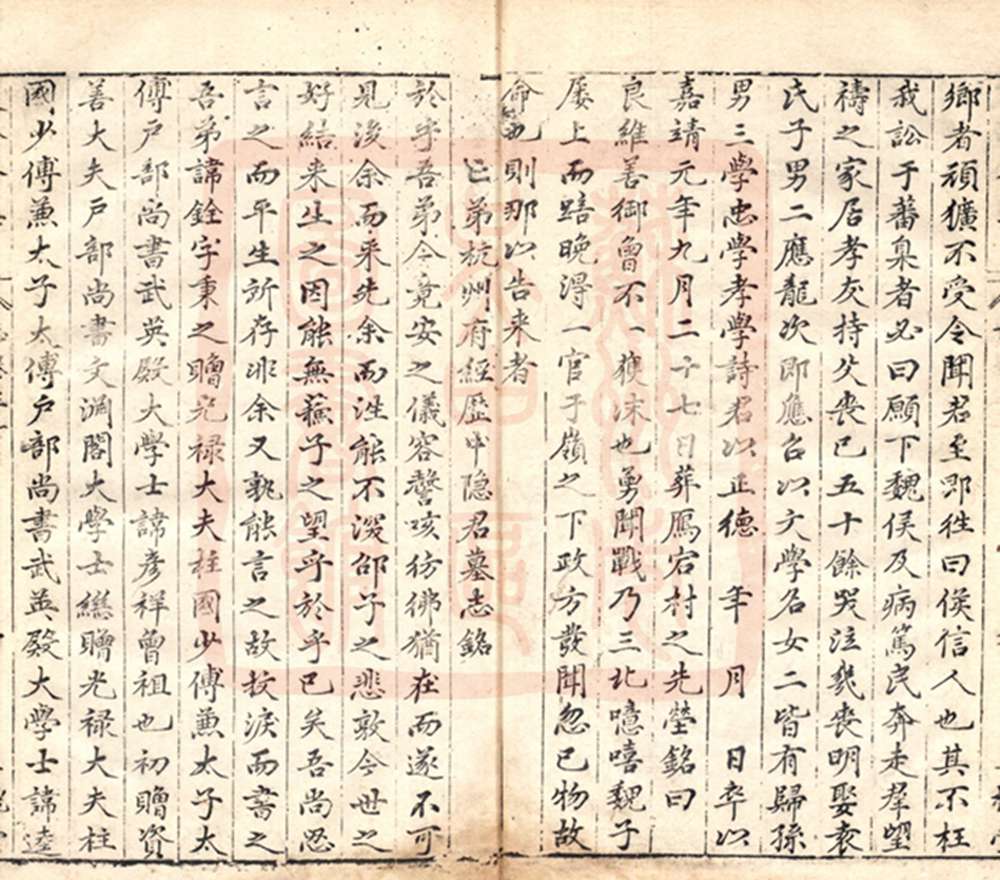 鄉者頑獷不受令聞君至即徃曰侯信人也其不枉
我訟于蕃臬者必曰願下魏侯及病篤民奔走群望
禱之家居孝友持父喪已五十餘哭泣幾喪明娶袁
氏子男二應龍次即應台以文學名女二皆有歸孫
男三學忠學孝學詩君以正德　年　月　日卒以
嘉靖元年九月二十七日葬鴈宕村之先塋銘曰
良維善御魯不一獲沫也勇聞戰乃三北噫嘻魏子
屡上而踣晚淂一官于嶺之下政方發聞忽已物故
命也則那以告来者
亡弟杭州府經歷中隐君墓志銘
於乎吾弟今竟安之儀容謦咳彷彿猶在而遂不可
見後余而来先余而逝能不深邵子之悲敦今世之
好結来生之因能無蘇子之望乎於乎已矣吾尚忍
言之而平生所存非余又孰能言之故抆淚而書之
吾弟諱銓字秉之贈光禄大夫柱國少傅兼太子太
傅户部尚書武英殿大學士諱彦祥曾祖也初贈資
善大夫户部尚書文渊閣大學士繼贈光禄大夫柱
國少傅兼太子太傅户部尚書武英殿大學士諱逵